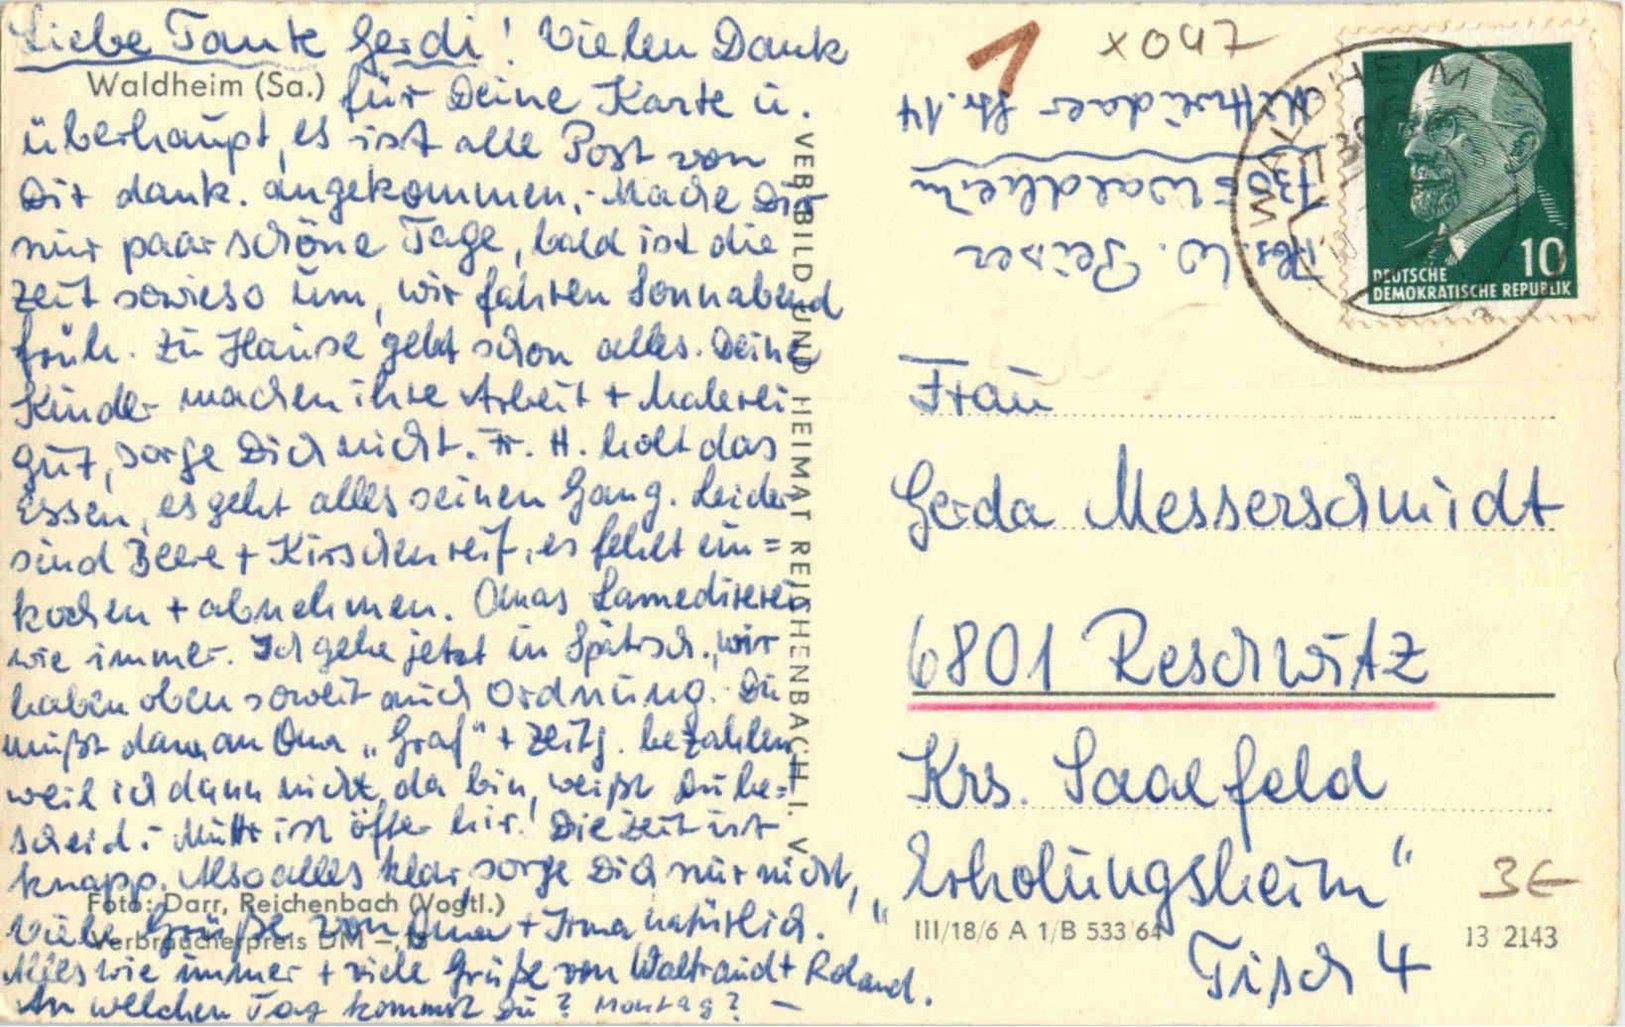 Liebe Tante Gerdi! Vielen Dank
Waldheim (Sa.)
für Deine Karte u.
überhaupt, es ist alle Post von
Dir dank. angekommen. Mache Dir
nur paar schöne Tage, bald ist die
Zeit sowieso um, wir fahren Sonnabend
früh. Zu Hause geht schon alles. Deine
Kinder machen ihre Arbeit + Malerei
gut, sorge Dich nicht. Fr. H. holt das
Essen, es geht alles seinen Gang. Leider
sind Beere + Kirschen reif, es fehlt ein=
kochen + abnehmen. Omas
wie immer. Ich gehe jetzt in Spätsch., wir
haben oben soweit auch Ordnung. Du
mußt dann an Oma „Graf" + Zeitg. bezahlen
weil ich dann nicht da bin, weißt Du be=
scheid. Mutti ist öfter hir. Die Zeit ist
knapp. Also alles klar, sorge Dich nur nicht,
Foto: Darr, Reichenbach (Vogtl.)
viele Grüße von Oma + Irma natürlich.
Verbraucherpreis DM –,
Alles wie immer + viele Grüße von Waltraud + Roland.
An welchen Tag kommst Du? Montag? –
VEB BILD UND HEIMAT REICHENBACH I. V.
1
x047
Abs. W. Peiser
7305 Waldheim
Mittweidaer Str. 14
WALDHEIM
10
DEUTSCHE
DEMOKRATISCHE REPUBLIK
Frau
Gerda Messerschmidt
6801 Reschwitz
Krs. Saalfeld
„Erholungsheim"
3€
III/18/6 A 1/B 533/64
13 2143
Tisch 4